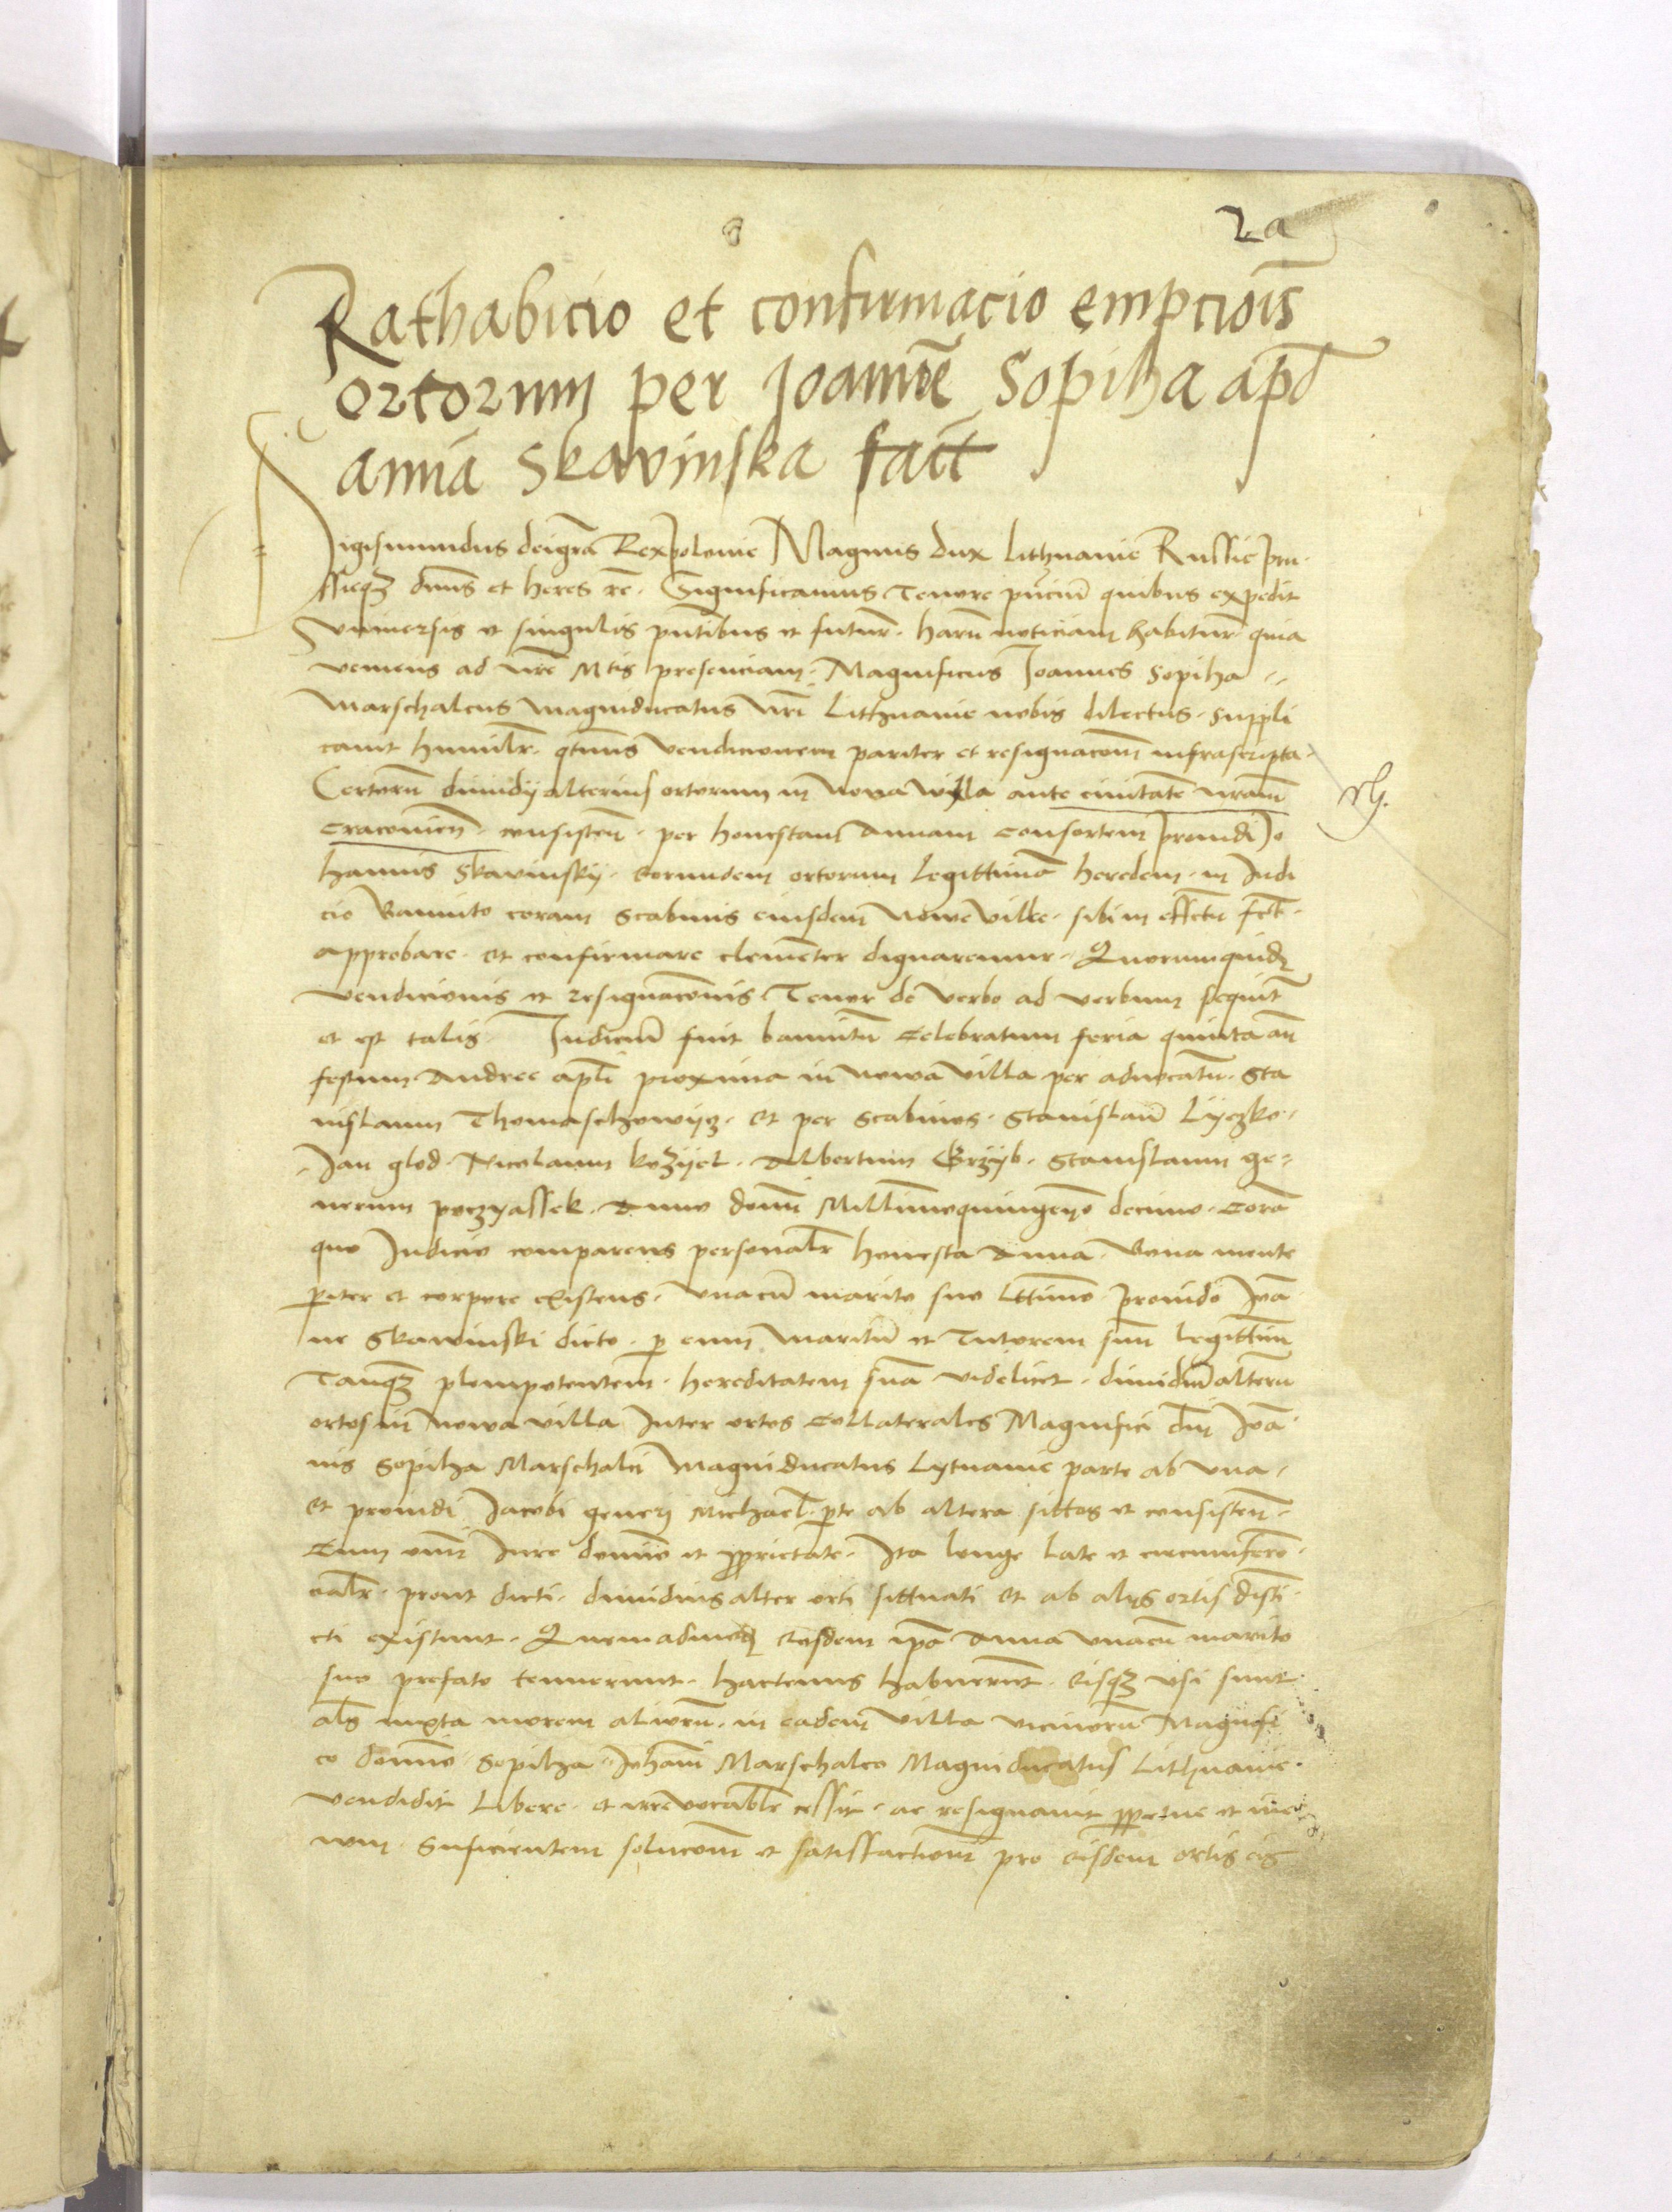 2a
Rathabicio et confirmacio empcioīs
ortorum per Joannē Sopiha apd
annā Skavinska fact
Sigismundus dei grā Rex polonie Magnus dux Lithuanie Russie pru-
ssieqz dnus et heres rc. Significamus Tenore pñcium quibus expedit
vniuersis et singulis pñtibus et futur. harū noticiam habitur quia
veniens ad nrē Mtis presenciam. Magnificus Joannes Sopiha
Marschalcus magniducatus nri Lithuanie nobis dilectus. suppli
cauit humilr. qtnus vendicionem pariter et resignacōm infrascripta.
Certorū dimidij alterius ortorum in Noua villa ante ciuitatē nram
Cracovien. consisten. per honestam Annam Consortem prouidi Jo
hannis Skavinsky. Eorundem ortorum Legittimā heredem. in Judi
cio Bannito coram Scabinis eiusdem Nowe ville. sibi in effctu fct.
approbare. et confirmare clementer dignaremur. Quorum quidē
vendicionis et resignacōnis Tenor de verbo ad verbum sequitr
et est talis. Judiciū fuit bannitū Celebratum feria quinta an
festum Andree apli proxima in nowa villa per aduocatū. Sta
nislaum Thomaschowijcz. et per Scabinos. Stanislaū Lyczko.
Jan glod. Nicolaum kozyel. Albertum Grzyb. Stanislaum ge=
nerum poczyassek. Anno domi Millimoquingenō decimo. Corā
quo Judicio comparens personalr honesta Anna. Bona mente
priter et corpore existens. vnacū marito suo Lttimo prouido Joā
ne Skawinski dicto. p eum maritū et Tutorem suū legittim
Tanqz plenipotentem. hereditatem suā videlicet. dimidiū alterū
ortos in nowa villa Inter ortos Collaterales Magnifici dni Joā
nis Sopiha Marschalci Magniducatus Lytuanie parte ab vna.
et prouidi Jacobi generi Michael. pte ab altera sittos et consisten.
Cum omi Jure domio et pprietate. Ita longe late et circumferen
cialr. prout dicti. dimidius alter orti sittuati et ab alijs ortis disti
cti existunt. Quemadmodū Eosdem ipa Anna vnacū marito
suo prefato tenuerunt. hactenus habuerunt. eisqz vsi sunt
als iuxta morem aliorū. in eadem villa vicinorū Magnifi
co domino Sopiha Johanni Marschalco Magniducatus Lithuanie.
vendidit Libere. et irreuocablr cessit. ac resignauit ppetue et in e
wm. Suficientem solucōm et satisfactionm pro eisdem ortis eis